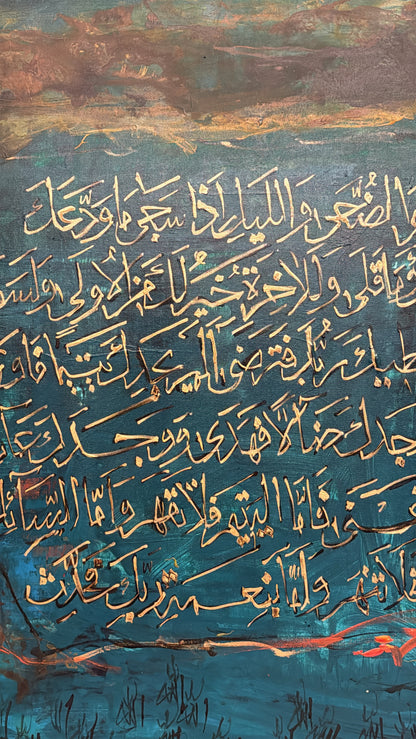 والضُّحَى والليل اذا سجى ما ودّعك
وما قلى وللاخرة خيرٌ لك من الاولى ولسو
طيك ربك فترضى الم يجدك يتيمًا فاو
جدك ضآلاً فهدى ووجدك عآ
غنى فامّا اليتيم فلا تقهر وامّا السآئل
فلا تنهر وامّا بنعمة ربّك فحدّث